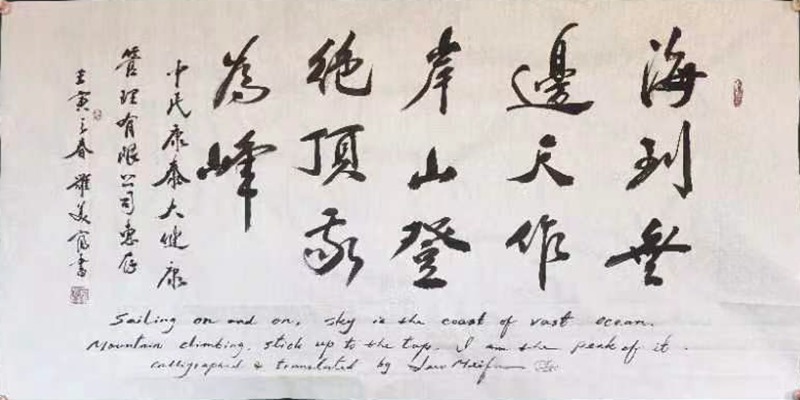 海到無
邊天作
岸山登
絶頂我
為峰
中民康泰大健康
管理有限公司惠存
壬寅之春 羅美富書
Sailing on and on, sky is the coast of vast ocean.
Mountain climbing, stick up to the top, I am the peak of it.
calligraphed & translated by Law Meifu